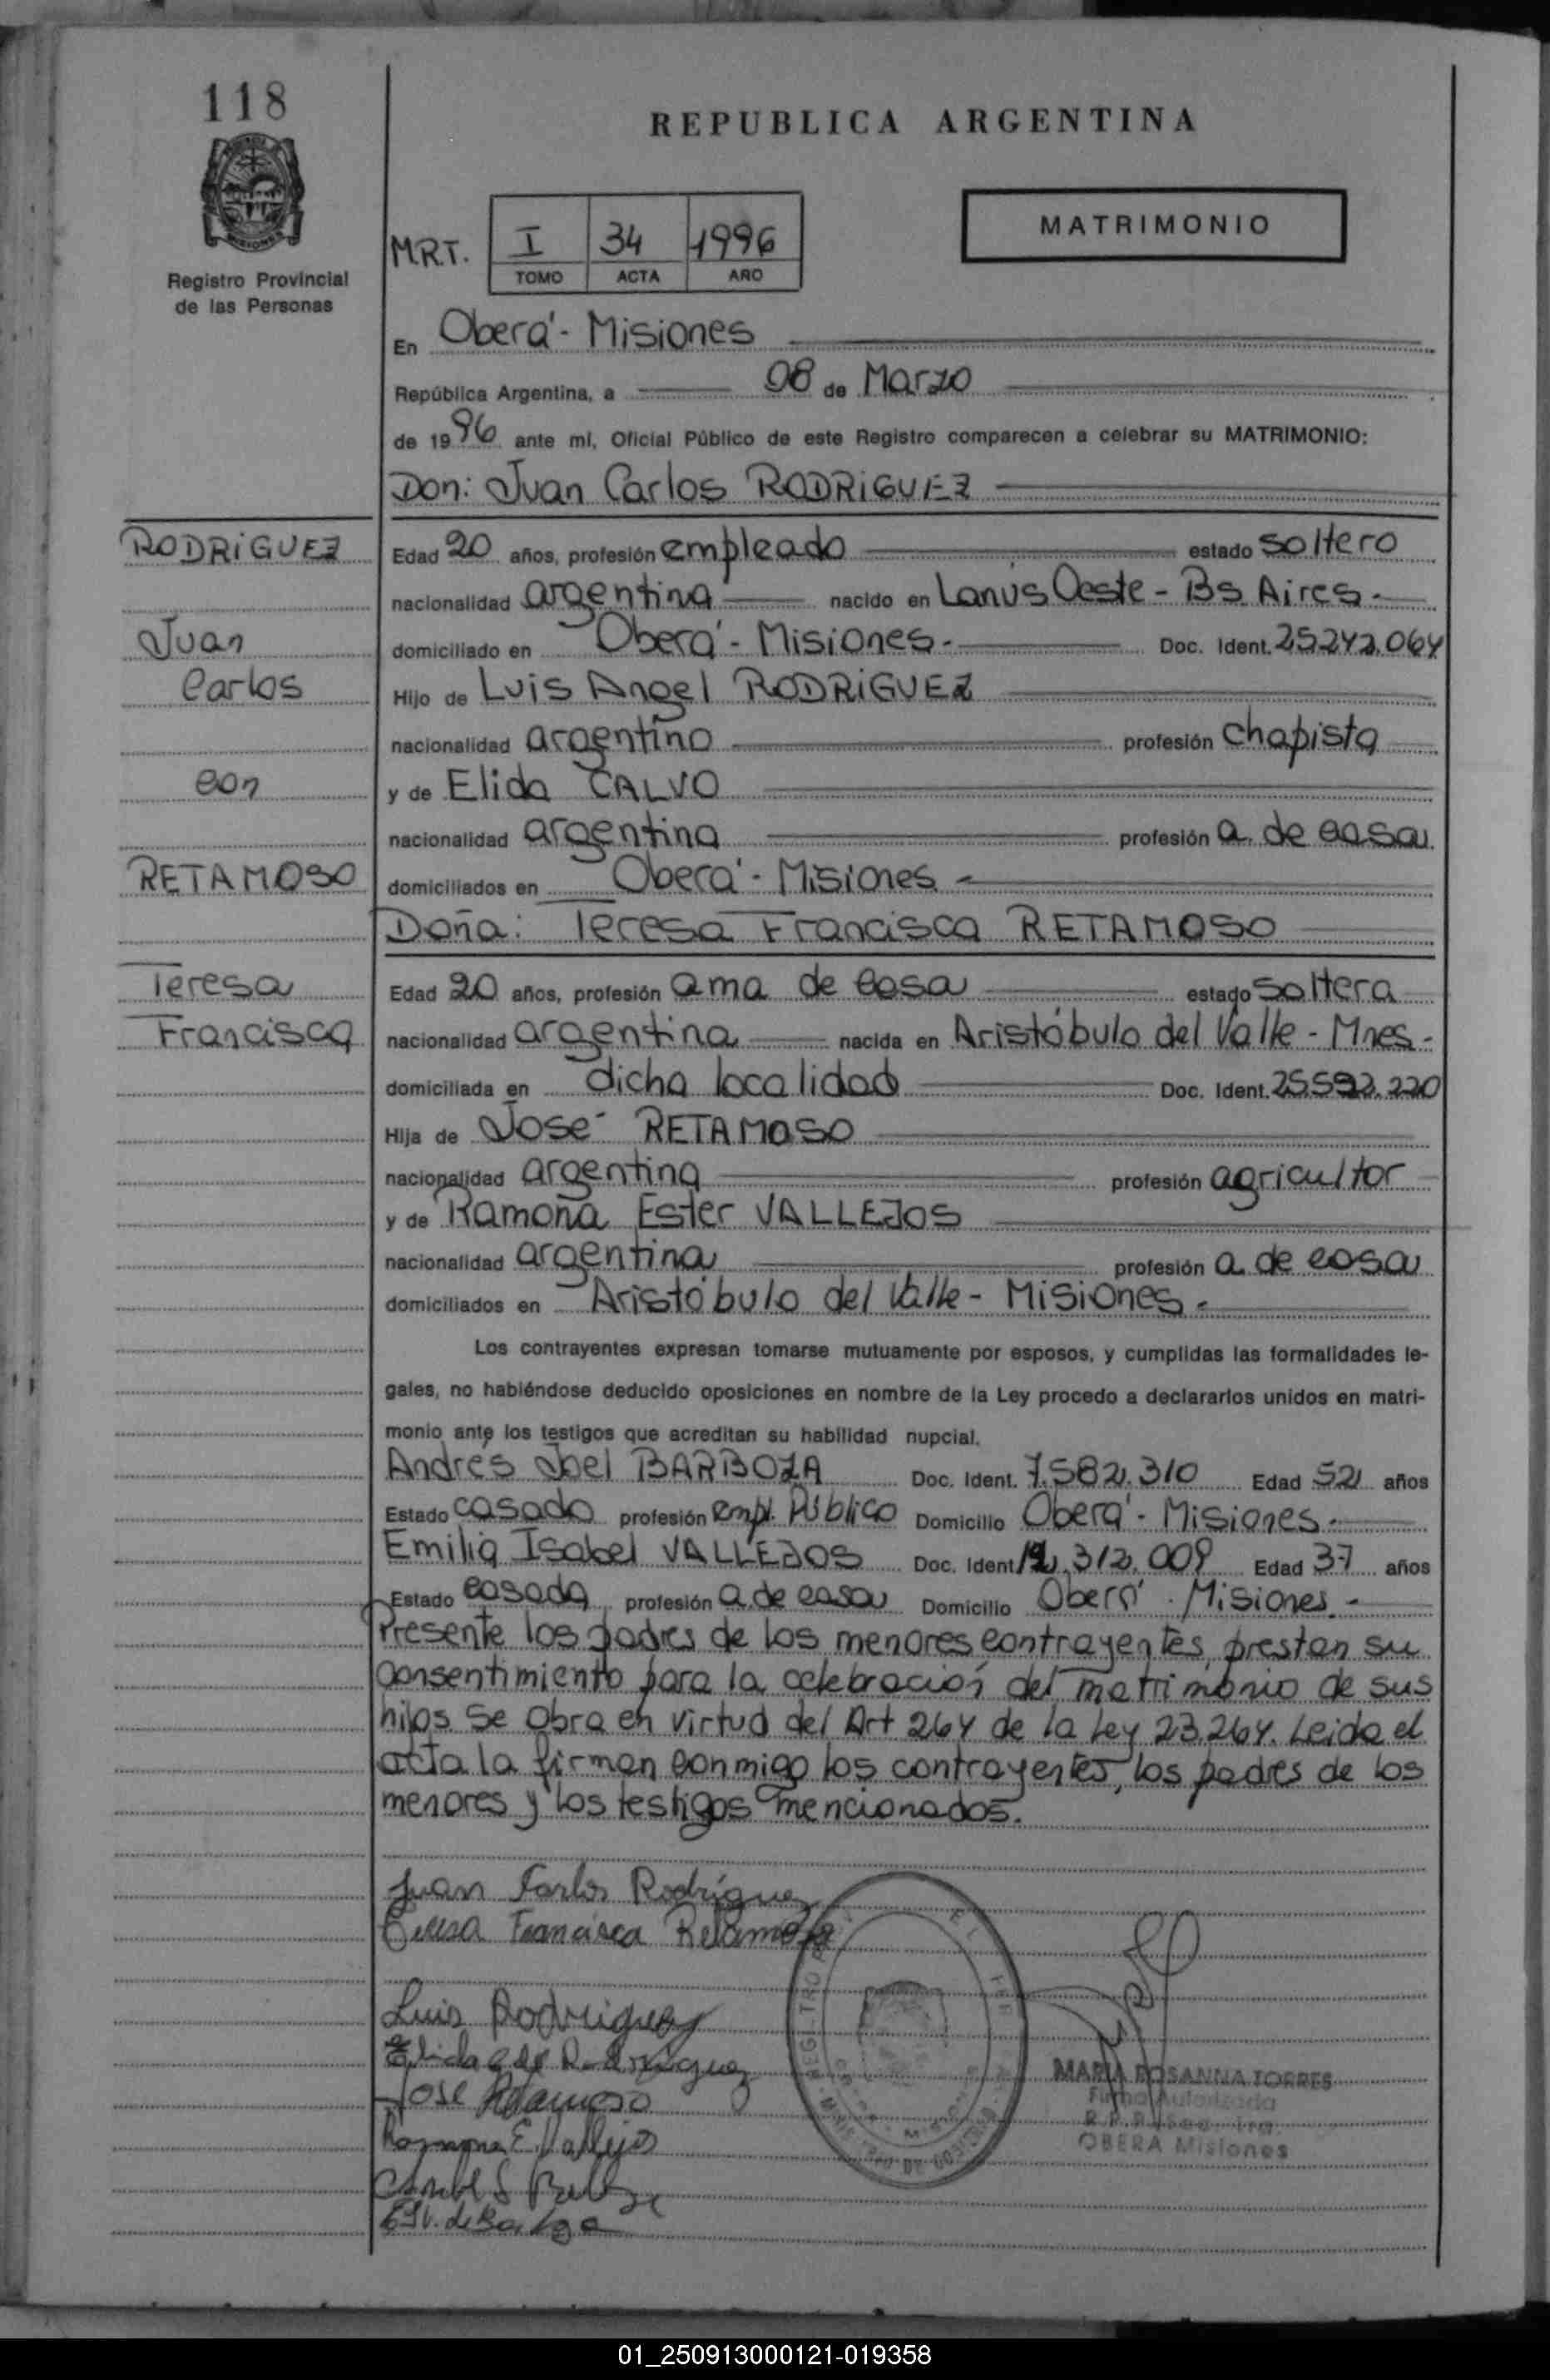 118
REPUBLICA ARGENTINA
MATRIMONIO
M.R.T. I 34 1996
TOMO ACTA AÑO
MISIONES
Registro Provincial
de las Personas
En Oberá - Misiones
República Argentina, a 08 de Marzo
de 1996 ante mí, Oficial Público de este Registro comparecen a celebrar su MATRIMONIO:
Don: Juan Carlos RODRIGUEZ
RODRIGUEZ
Edad 20 años, profesión empleado estado soltero
nacionalidad argentina nacido en Lanús Oeste - Bs Aires.-
Juan
domiciliado en Oberá - Misiones.- Doc. Ident. 25.242.064
Carlos
Hijo de Luis Angel RODRIGUEZ
nacionalidad argentino profesión chapista
con
y de Elida CALVO
nacionalidad argentina profesión a. de casa
RETAMOSO
domiciliados en Oberá - Misiones -
Doña: Teresa Francisca RETAMOSO
Teresa
Edad 20 años, profesión ama de casa estado soltera
Francisca
nacionalidad argentina nacida en Aristóbulo del Valle - Mnes.-
domiciliada en dicha localidad Doc. Ident. 25.592.220
Hija de José RETAMOSO
nacionalidad argentina profesión agricultor
y de Ramona Ester VALLEJOS
nacionalidad argentina profesión a. de casa
domiciliados en Aristóbulo del Valle - Misiones.-
Los contrayentes expresan tomarse mutuamente por esposos, y cumplidas las formalidades le-
gales, no habiéndose deducido oposiciones en nombre de la Ley procedo a declararlos unidos en matri-
monio ante los testigos que acreditan su habilidad nupcial.
Andrés Joel BARBOZA Doc. Ident. 7.582.310 Edad 52 años
Estado casado profesión empl. Público Domicilio Oberá - Misiones.-
Emilia Isabel VALLEJOS Doc. Ident. 12.312.009 Edad 37 años
Estado casada profesión a. de casa Domicilio Oberá - Misiones.-
Presente los padres de los menores contrayentes, prestan su
consentimiento para la celebración del matrimonio de sus
hijos se obra en virtud del Art 264 de la Ley 23.264. Leida el
acta la firman conmigo los contrayentes, los padres de los
menores y los testigos mencionados.
Juan Carlos Rodríguez
Teresa Francisca Retamoso
Luis Rodriguez
Elida C de Rodriguez
Jose Retamoso
Ramona E. Vallejo
MARIA ROSANNA TORRES
Firma Autorizada
OBERA Misiones
01_250913000121-019358